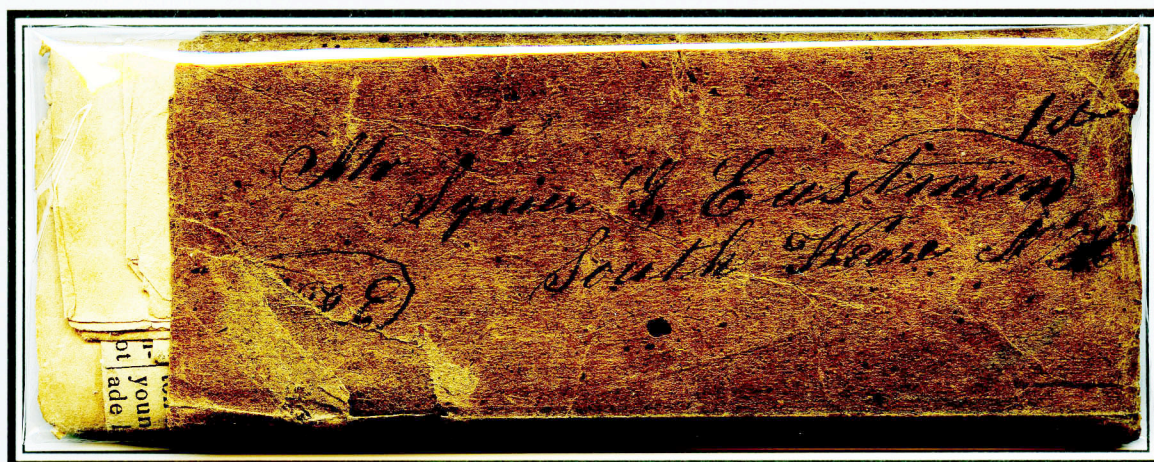 Mr
Squier G Eastman
South Weare N H
young
ade